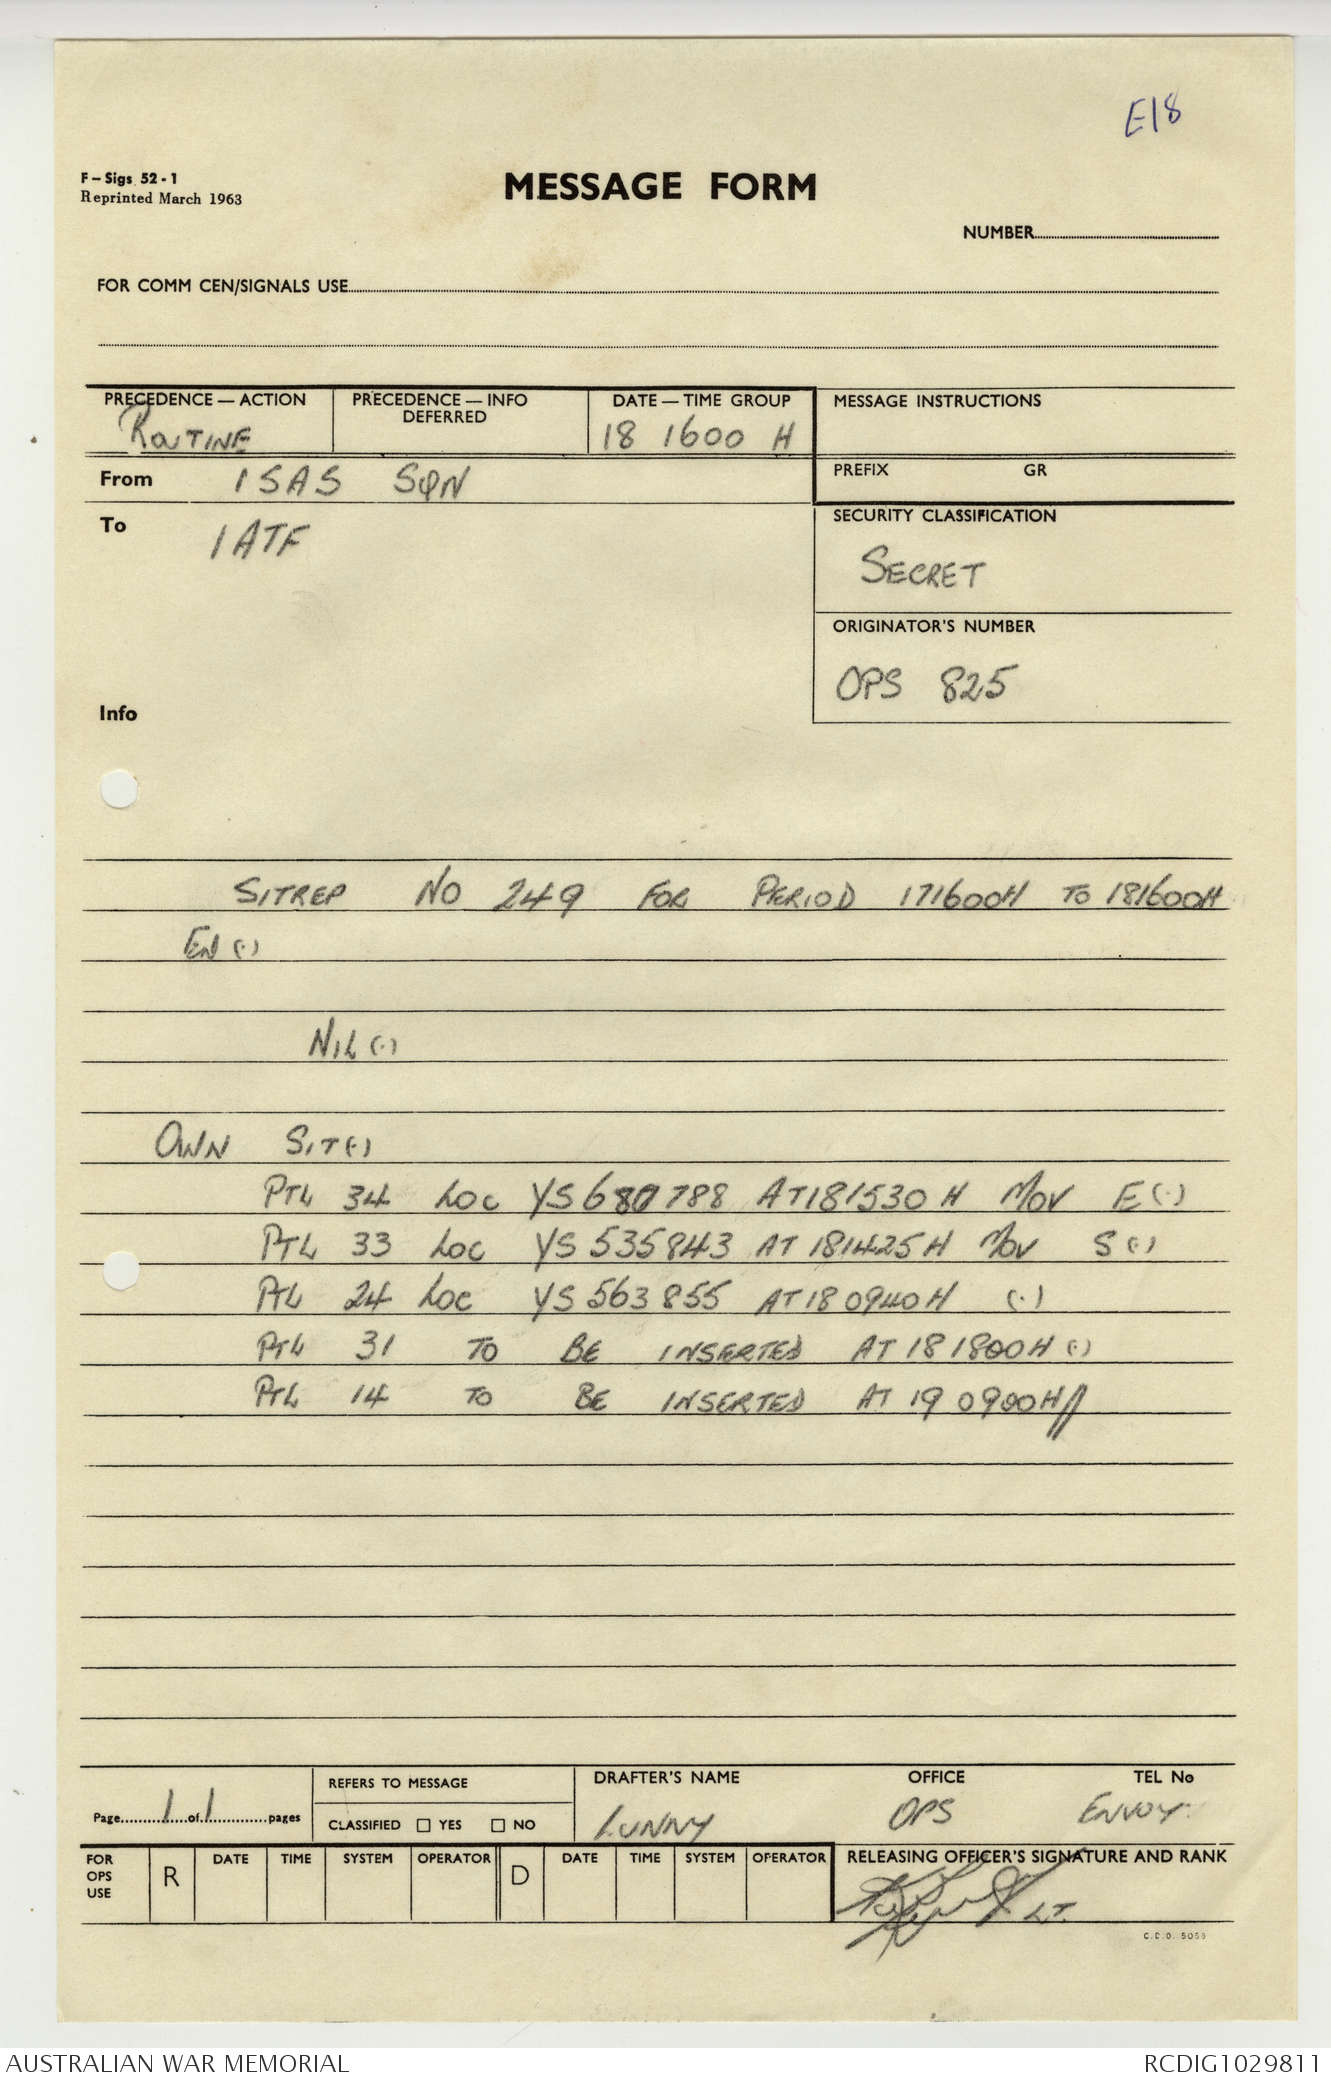 E18
F – Sigs 52 - 1
Reprinted March 1963
MESSAGE FORM
NUMBER
FOR COMM CEN/SIGNALS USE
PRECEDENCE — ACTION
ROUTINE
PRECEDENCE — INFO
DEFERRED
DATE — TIME GROUP
18 1600 H
MESSAGE INSTRUCTIONS
From 1 SAS SQN
PREFIX GR
To 1 ATF
SECURITY CLASSIFICATION
SECRET
ORIGINATOR'S NUMBER
OPS 825
Info
SITREP NO 249 FOR PERIOD 171600H TO 181600H
EN (·)
NIL (·)
OWN SIT (·)
PTL 34 LOC YS 680788 AT 181530 H MOV E (·)
PTL 33 LOC YS 535843 AT 181425H MOV S (·)
PTL 24 LOC YS 563855 AT 18 0940H (·)
PTL 31 TO BE INSERTED AT 18 1800H (·)
PTL 14 TO BE INSERTED AT 19 0900H//
Page 1 of 1 pages
REFERS TO MESSAGE
CLASSIFIED ☐ YES ☐ NO
DRAFTER'S NAME
LUNNY
OFFICE
OPS
TEL No
ENVOY
FOR
OPS
USE
R DATE TIME SYSTEM OPERATOR D DATE TIME SYSTEM OPERATOR
RELEASING OFFICER'S SIGNATURE AND RANK
LT.
C.D.O. 5059
AUSTRALIAN WAR MEMORIAL
RCDIG1029811